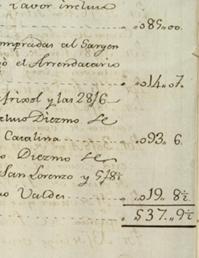 favor incluso
..o85,,oo.
compradas al Sargen
o el Arrendatario
..o14,,o7.
trixol y las 2816
cluso Diezmo
Catalina ..o93,,6.
o Diezmo
San Lorenzo y
o Valdes ..o19,,8½
537,,9½